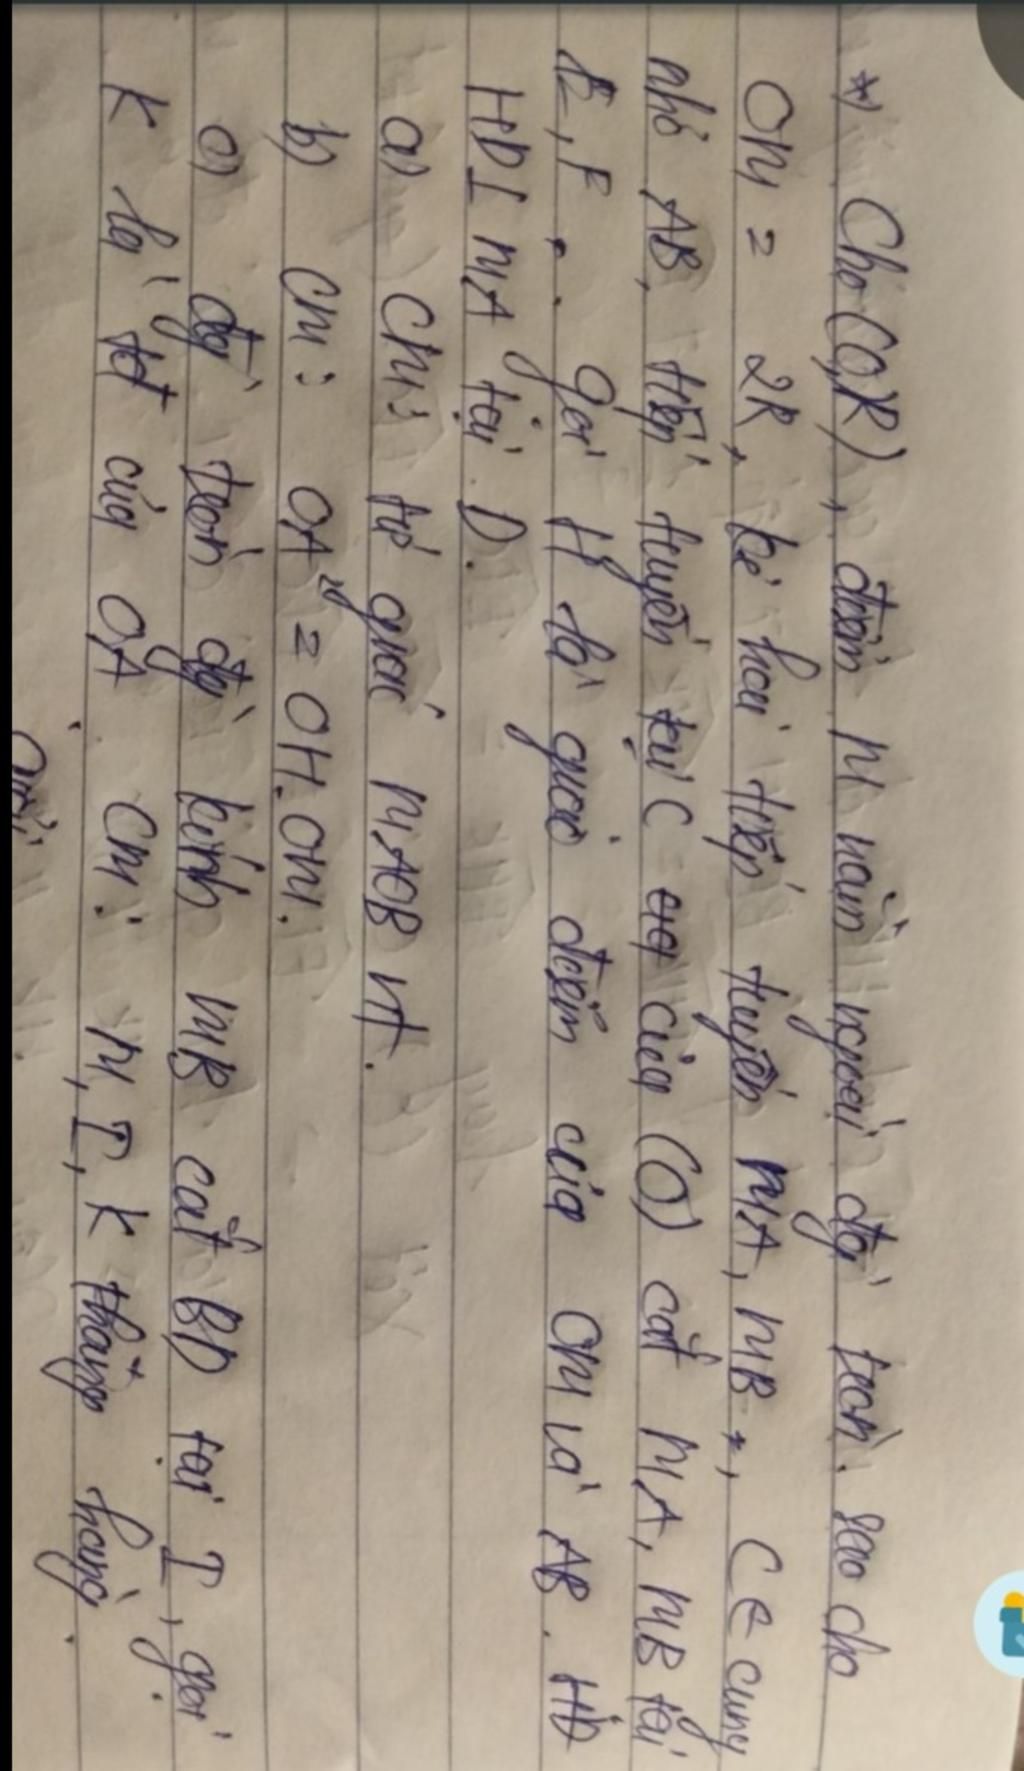 *) Cho (O,R), điểm M nằm ngoài đg tròn. sao cho
OM = 2R, kẻ hai tiếp tuyến MA, MB, C ∈ cung
nhỏ AB, tiếp tuyến tại C của (O) cắt MA, MB tại
E, F. Gọi H là giao điểm của OM và AB. HD
HD⊥MA tại D.
a) CM: tứ giác MAOB nt.
b) CM: OA² = OH.OM.
c) đg tròn đg kính MB cắt BD tại I, gọi
K là tđ của OA CM: M, I, K thẳng hàng.